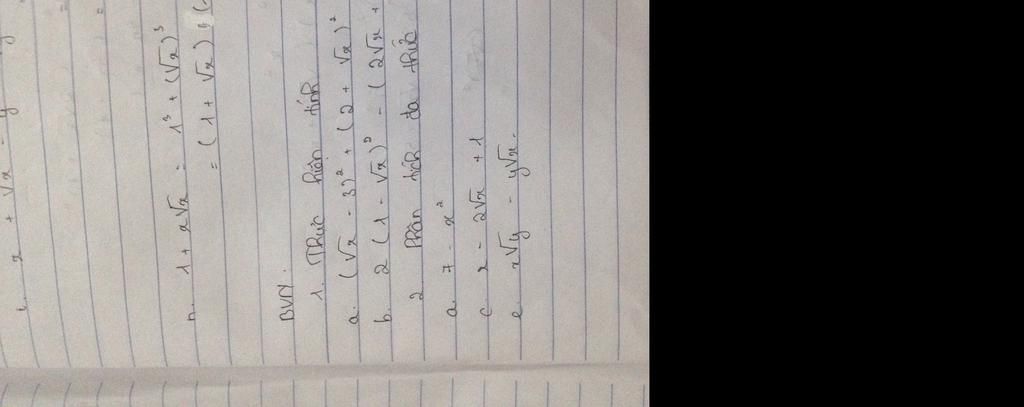 x + √x - y
n. 1 + x√x = 1³ + (√x)³
= (1 + √x)
BVN.
1. Thực hiện tính
a. (√x - 3)² + (2 + √x)²
b. 2 (1 - √x)² - (2√x +
2 Phân tích đa thức
a. 7 - x²
c x - 2√x + 1
e. x√y - y√x.